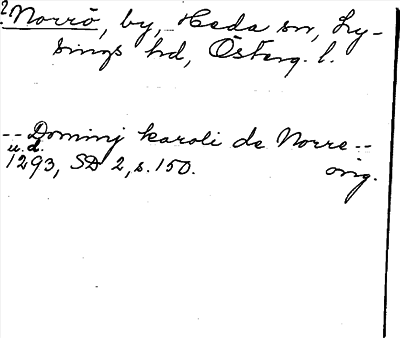 2 Norrö, by, Heda sn, Ly-
sings hd, Österg. l.
-- Dominj karoli de Norre --
u. d.
1293, SD 2, s. 150. orig.